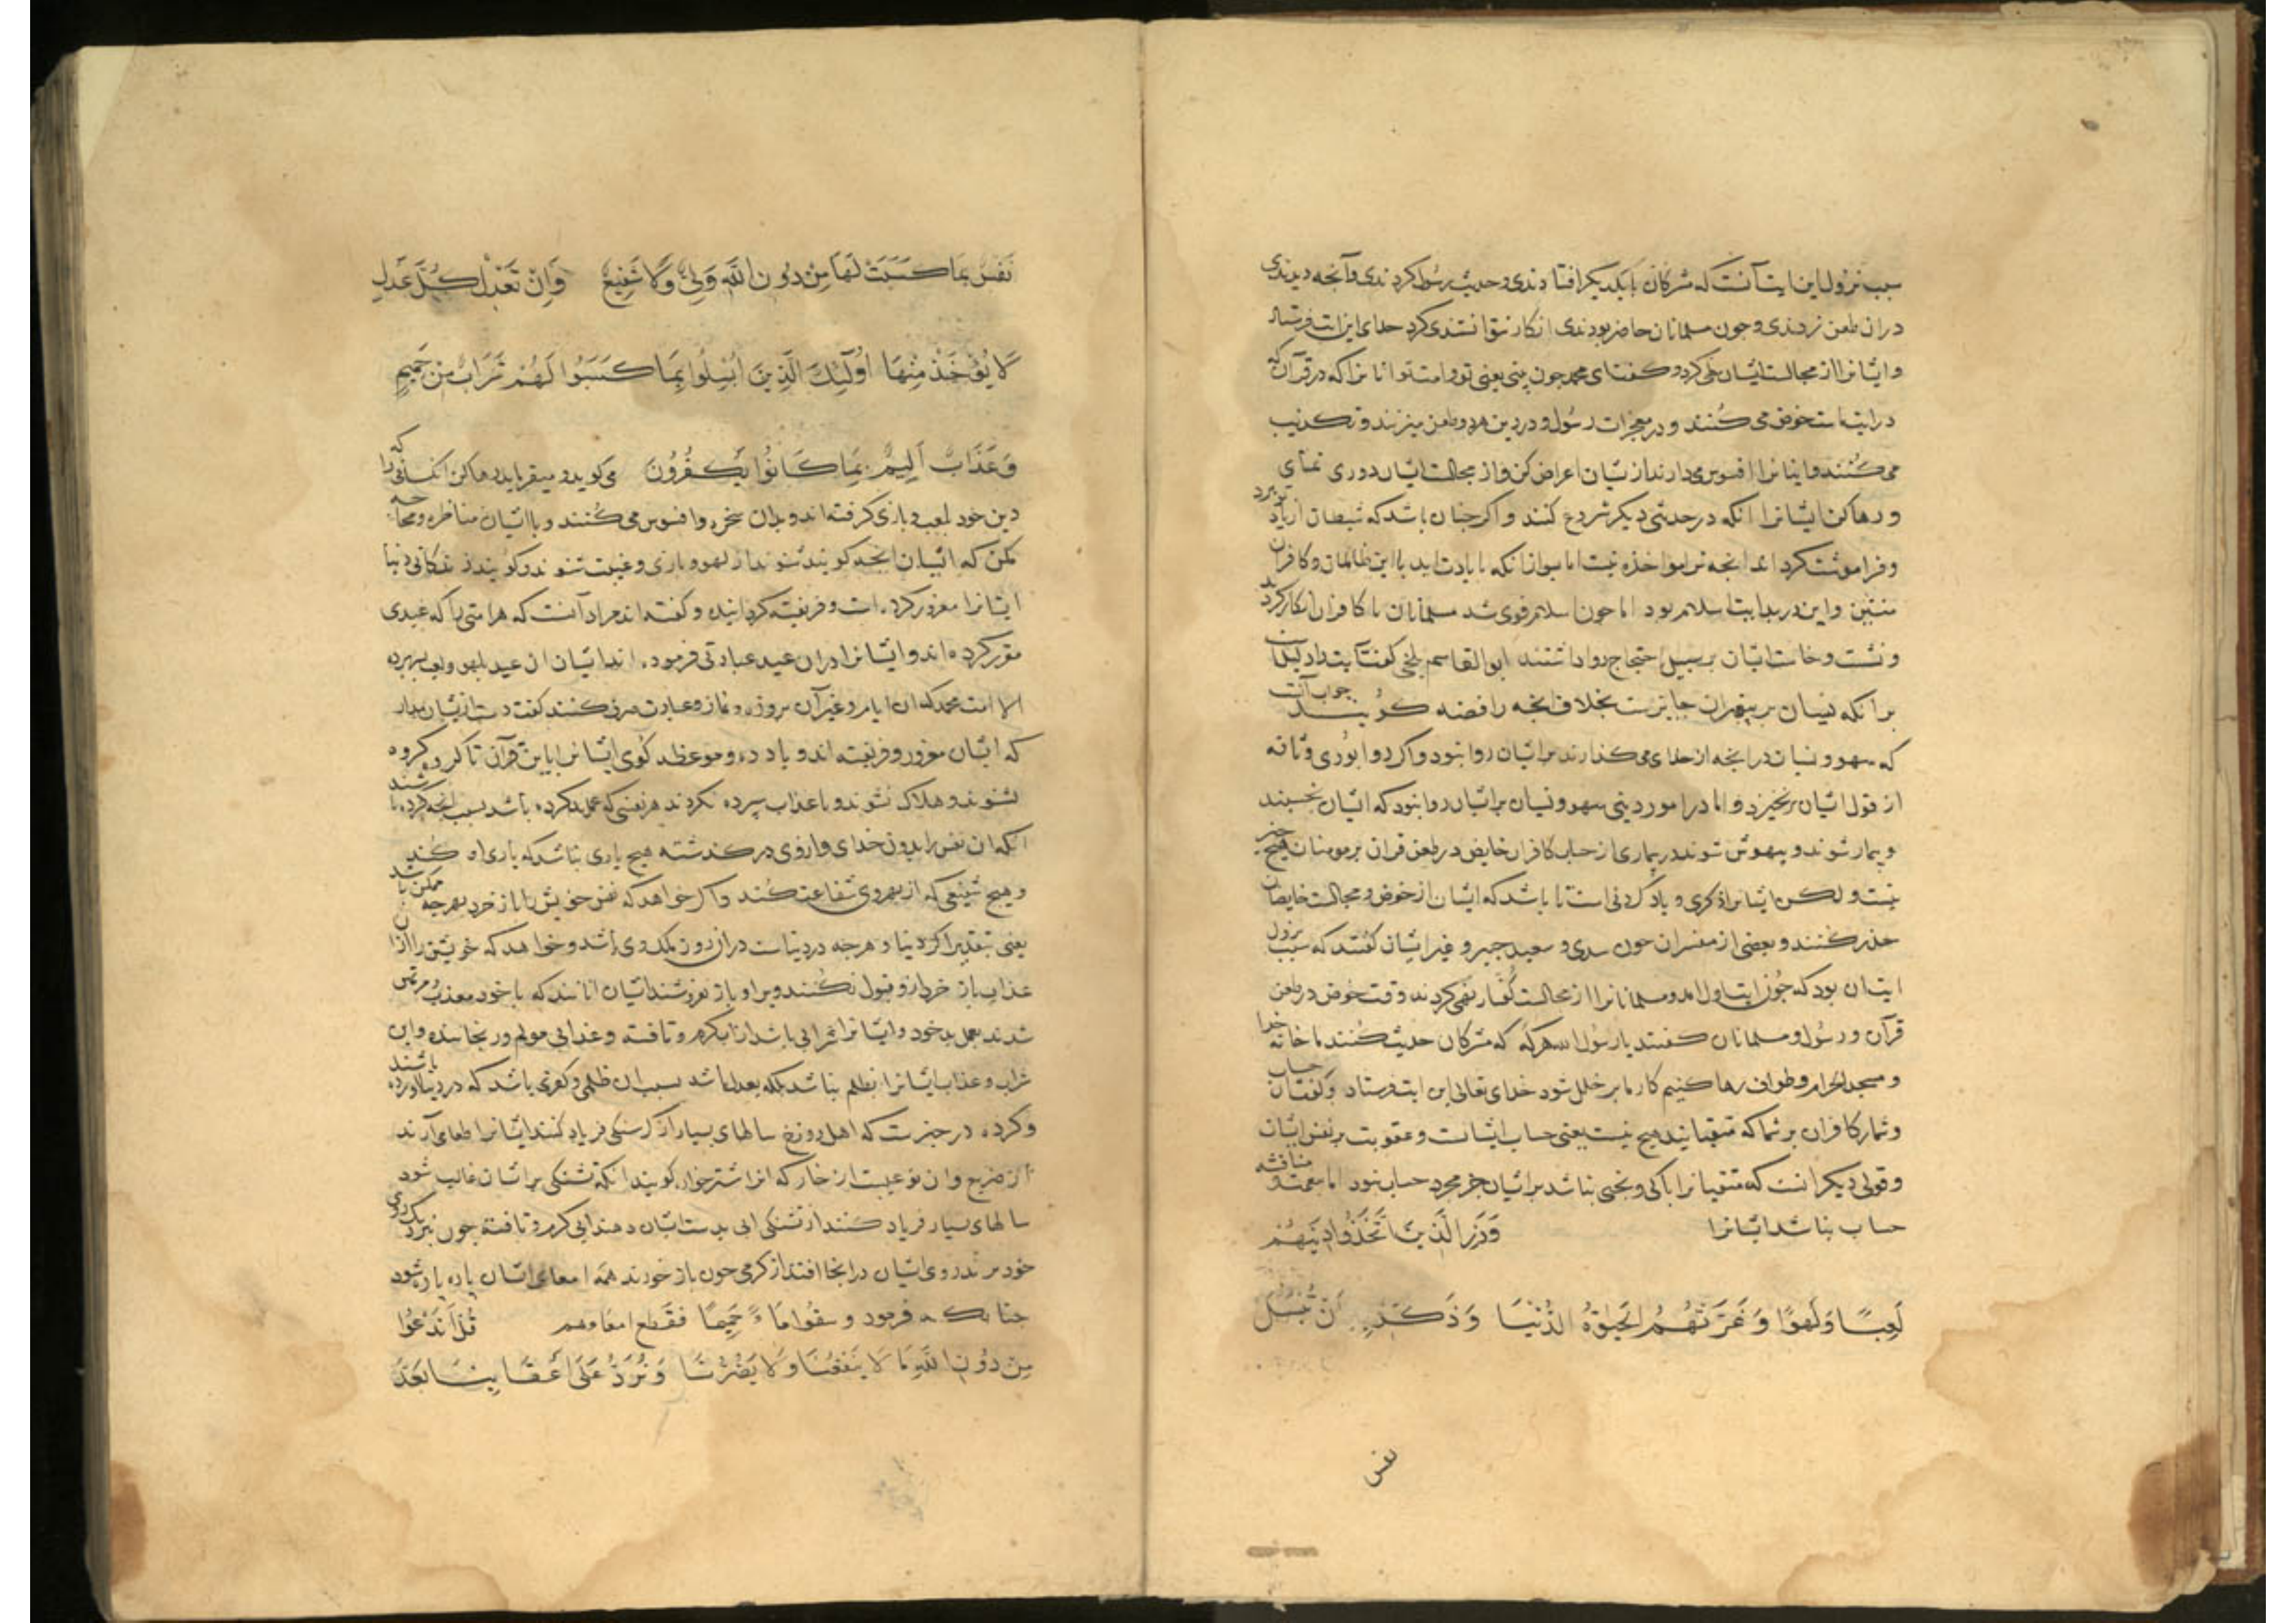 سبب نزول این ایت آنست که مشرکان با یکدیگر افتادندی و حدیث رسول کردندی و آنچه دیدندی
در ان طعن زدندی و جون مسلمانان حاضر بودندی انکار نتوانستندی کرد خدای این ایت فرستاد
و ایشانرا از مجالست ایشان نهی کرد و گفت ای محمد جون بینی یعنی تو و امت تو انانرا که در قرآن که
در ایت ماست خوض می کنند و در معجزات رسول و در دین هر دو طعن میزنند و تکذیب
می کنند و اینانرا افسوس می دارند از یشان اعراض کن و از مجالست ایشان دوری نمای
و رها کن ایشانرا انکه در حدیثی دیکر شروع کنند و اکر جنان باشد که شیطان از یاد تو برد
و فراموشت کرداند انجه ترا مواخذه نیست اما پس از انکه با یادت اید با این ظالمان و کافران
منشین و این در بدایت اسلام بود اما جون اسلام قوی شد مسلمانان با کافران انکار کردند
و نشست و خاست ایشان بر سبیل احتجاج روا داشتند ابوالقاسم بلخی گفت ایت دلیلست
بر انکه نسیان بر پیغمبران جایزست بخلاف انجه رافضه کویند جواب آنست
که سهو و نسیان در انجه از خدای می گذارند بر ایشان روا نبود و اکر روا بودی وثاقه
از قول ایشان برخیزد و اما در امور دینی سهو و نسیان بر ایشان روا بود که ایشان بخسبند
و بیمار شوند و بیهوش شوند در بیماری از حساب کافران خایض در طعن قران بر مومنان هیچ چیز
نیست و لکن ایشانرا ذکری و یاد کردنی است تا باشد که ایشان از خوض و مجالست خایضان
حذر کنند و بعضی از مفسران جون سدی و سعید جبیر و غیر ایشان گفتند که سبب نزول
ایت ان بود که جون ایت اول امد و مسلمانانرا از مجالست کفار نهی کردند وقت خوض در طعن
قرآن و رسول و مسلمانان گفتند یا رسول الله هرگه که مشرکان حدیث کنند ما خانه خدا
و مسجد الحرام و طواف رها کنیم کار ما بر خلل شود خدای تعالی این ایت فرستاد و گفت حساب
و شمار کافران بر شما که متقیانید هیچ نیست یعنی حساب ایشانست و عقوبت بر نفس ایشان
و قولی دیکر انست که متقیانرا باکی و بخسی نباشد بر ایشان جز مجرد حساب نبود اما مناقشه
حساب نباشد ایشانرا وَذَرِ الَّذِينَ اتَّخَذُوا دِينَهُمْ
لَعِبًا وَلَهْوًا وَغَرَّتْهُمُ الْحَيَوةُ الدُّنْيَا وَذَكِّرْ بِهِ أَنْ تُبْسَلَ
نفس
نَفْسٌ بِمَا كَسَبَتْ لَهَا مِنْ دُونِ اللَّهِ وَلِيٌّ وَلَا شَفِيعٌ وَإِنْ تَعْدِلْ كُلَّ عَدْلٍ
لَا يُؤْخَذْ مِنْهَا أُولَٰئِكَ الَّذِينَ أُبْسِلُوا بِمَا كَسَبُوا لَهُمْ شَرَابٌ مِنْ حَمِيمٍ
وَعَذَابٌ أَلِيمٌ بِمَا كَانُوا يَكْفُرُونَ می کوید و میفرماید رها کن انکسانی را که
دین خود بلعب و بازی کرفته اند و بدان سخره و افسوس می کنند و با ایشان مناظره و محاجه
مکن که ایشان انجه کویند شنوند از لهو و بازی و غیبت شنوند و کویند زندکانی دنیا
ایشانرا مغرور کرده است و فریفته کردانیده و گفته اند مراد آنست که هر امتی را که عیدی
مقرر کرده اند و ایشانرا در ان عید عبادتی فرموده اند ایشان ان عید بلهو و لعب بسر برده
الا امت محمد که ان ایام و غیر آن بروزه و نماز و عبادت صرف کنند گفت دست از یشان بدار
که ایشان مغرور و فریفته اند و یاد ده و موعظه کوی ایشانرا باین قرآن تا کرو کرده
نشوند و هلاک نشوند و با عذاب سپرده نکردند هر نفسی که عمل بد کرده باشد بسبب انجه کرده باشند
انکه ان نفس را بدون خدای و از وی در گذشته هیچ یاری نباشد که یاری او کند
و هیچ شفیعی که از بهر وی شفاعت کند و اکر خواهد که نفس خویش را باز خرد بهرجه ممکن باشد
یعنی بتقدیر اکر دنیا و هرجه در دنیاست در ان روز ملک وی باشد و خواهد که خویشتن را از ان
عذاب باز خرد ازو قبول نکنند و برا و باز نفروشند ایشان انانند که با خود معذب و مرتهن
شدند بعمل بد خود و ایشانرا شرابی باشد از اب کرم و تافته و عذابی مولم و رنجاننده و این
شراب و عذاب ایشانرا بظلم نباشد بلکه بعدل باشد بسبب ان ظلمی و کفری باشد که در دنیا اورده باشند
و کرده در خبرست که اهل دوزخ سالهای بسیار از کرسنکی فریاد کنند ایشانرا طعامی آرند
از ضریع و ان نوعیست از خار که انرا اشترخوار کویند انکه تشنکی بر ایشان غالب شود
سالهای بسیار فریاد کنند از تشنکی ابی بدست ایشان دهند ابی کرم و تافته جون نزدیک روی
خود برند روی ایشان در انجا افتد از کرمی جون باز خورند همه امعای ایشان پاره پاره شود
جنانک فرمود و سقوا مَاءً حَمِيمًا فَقَطَّعَ امعاءهم قُلْ أَنَدْعُوا
مِنْ دُونِ اللَّهِ مَا لَا يَنْفَعُنَا وَلَا يَضُرُّنَا وَنُرَدُّ عَلَى أَعْقَابِنَا بَعْدَ